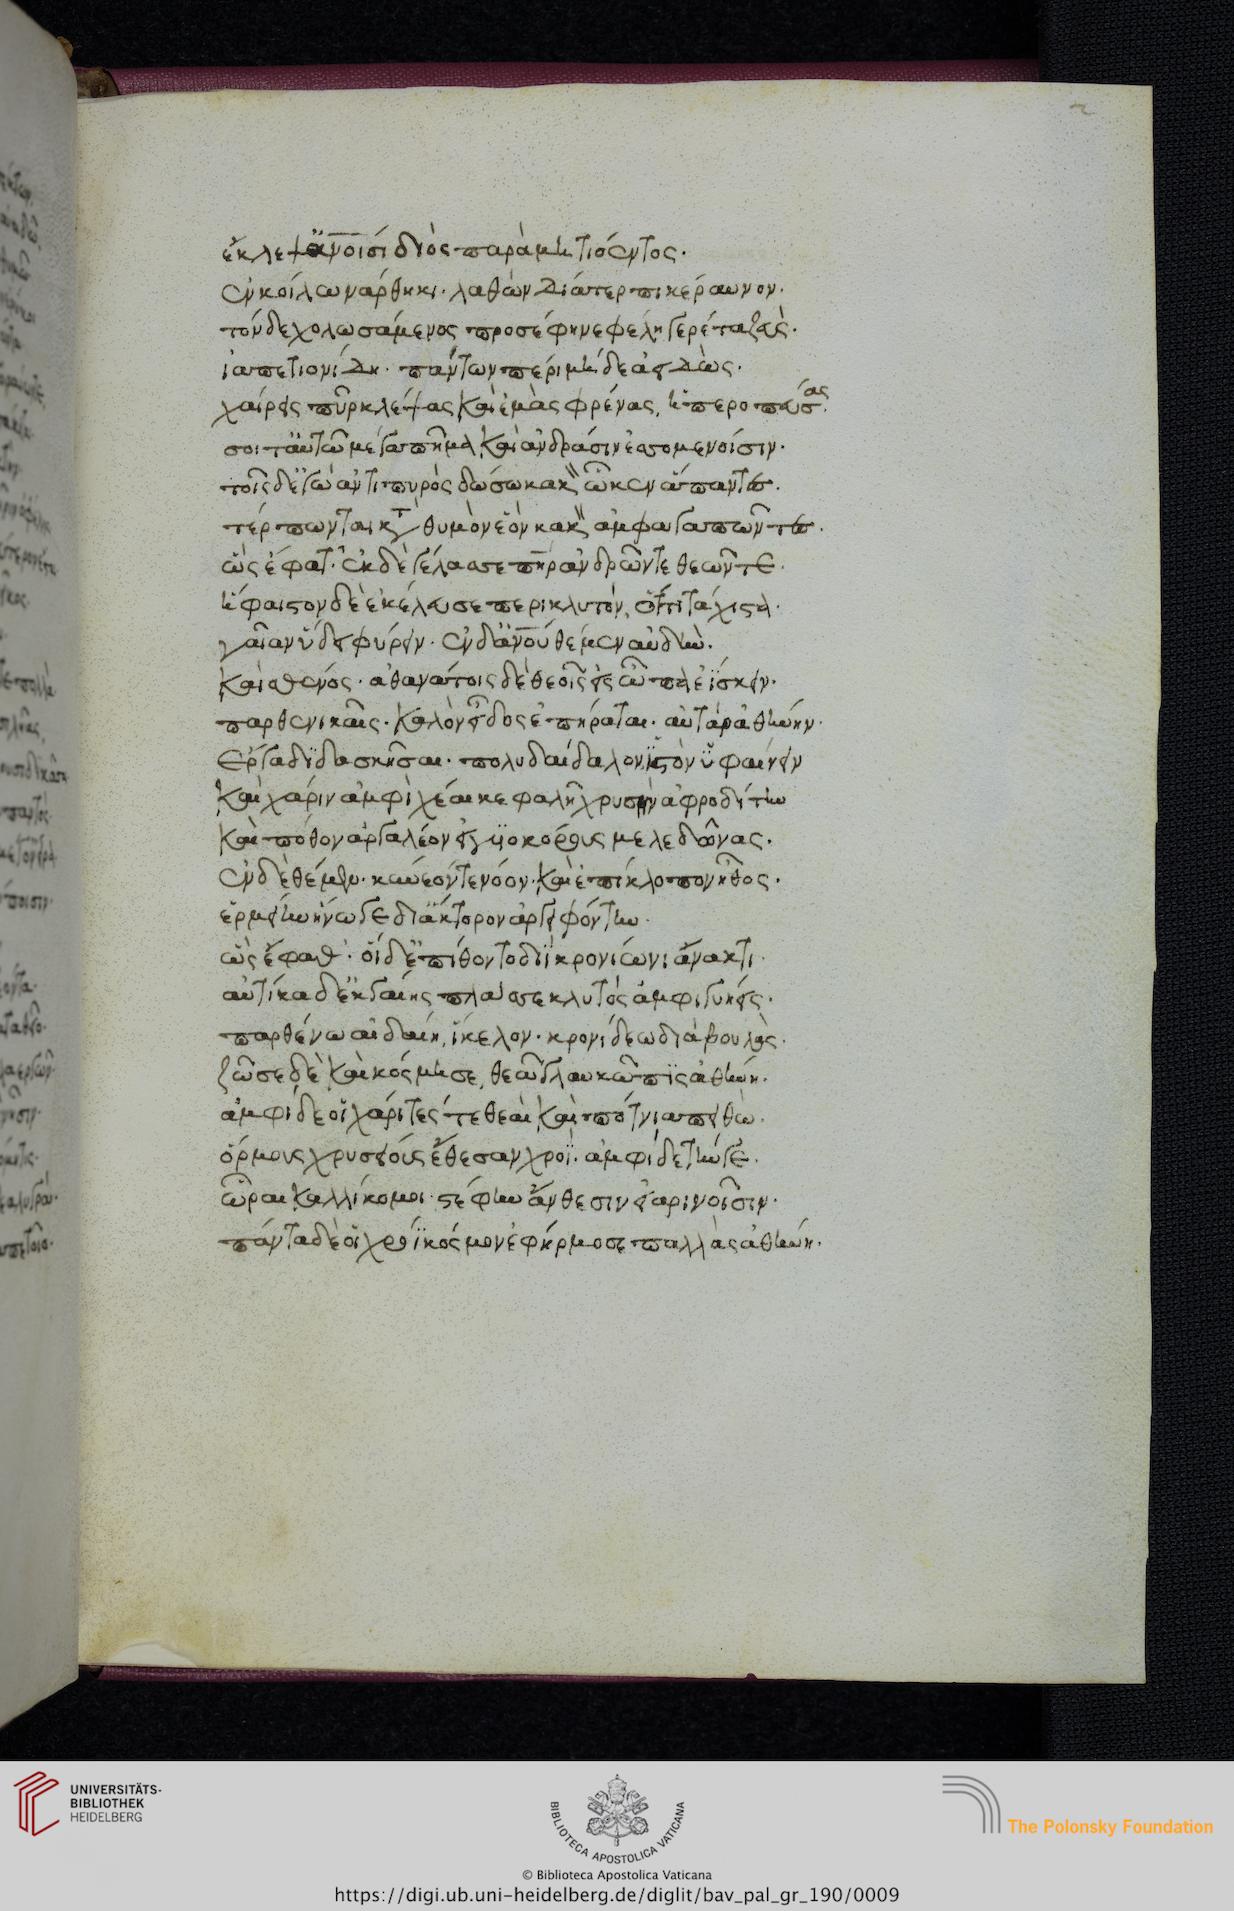 2
ἔκλεψ' ἀνοισί διὸς παρὰ μητιόεντος·
ἐν κοίλω νάρθηκι· λαθὼν δία τερπικέραυνον·
τόν δε χολωσάμενος προσέφη νεφεληγερέτα ζεὺς·
ἰαπετιονίδη· πάντων πέρι μήδεα εἰδὼς·
χαίρεις πῦρ κλέψας καὶ ἐμὰς φρένας, ἠπεροπεύσας·
σοι τ' αὐτῶ μέγα πῆμα καὶ ἀνδράσιν ἐσομενοίσιν·
τοῖς δ' ἐγὼ ἀντι πυρὸς δώσω κακὸν ὧ κεν ἅπαντες·
τέρπωνται κατὰ θυμὸν ἑὸν κακὸν ἀμφαγαπῶντες·
ὣς ἔφατ'· ἐκ δὲ γέλασσε πηρ ἀνδρῶν τε θεῶν τε·
ἥφαιστον δὲ ἐκέλευσε περικλυτόν, ὅττι τάχιστα·
γαῖαν ὕδει φύρειν· ἐν δ' ανου θέμεν αὐδὴν·
καὶ σθένος· ἀθανάτοις δὲ θεοῖς εἰς ὦπα ἐΐσκειν·
παρθενικαῖς· καλὸν εἶδος ἐπήρατον· αὐτὰρ ἀθήνην·
ἔργα διδασκῆσαι· πολυδαίδαλον ἱστὸν ὑφαίνειν
καὶ χάριν ἀμφὶ χέαι κεφαλῆ χρυσῆν ἀφροδίτην
καὶ πόθον ἀργαλέον καὶ γυιοκόρους μελεδῶνας·
ἐν δὲ θέμεν· κύνεόν τε νόον· καὶ ἐπίκλοπον ἦθος·
ἑρμείην ἤνωγε διάκτορον ἀργειφόντην·
ὣς ἔφαθ'· οἵ δ' ἐπίθοντο διῒ κρονίωνι ἄνακτι·
αὐτίκα δ' ἐκ γαίης πλάσσε κλυτὸς ἀμφιγυήεις·
παρθένω αἰδοίη, ἴκελον· κρονίδεω διὰ βουλὰς·
ζῶσε δὲ καὶ κόσμησε, θεὰ γλαυκῶπις ἀθήνη·
ἀμφὶ δε οἱ χάριτές τε θεαὶ καὶ πότνια πειθὼ·
ὅρμους χρυσείους ἔθεσαν χροΐ· ἀμφὶ δε τήν γε·
ὧραι καλλίκομοι στέφον ἄνθεσιν εἰαρινοῖσιν·
πάντα δέ οἱ χροῒ κόσμον ἐφήρμοσε παλλὰς ἀθήνη·
UNIVERSITÄTS-
BIBLIOTHEK
HEIDELBERG
BIBLIOTECA APOSTOLICA VATICANA
The Polonsky Foundation
© Biblioteca Apostolica Vaticana
https://digi.ub.uni-heidelberg.de/diglit/bav_pal_gr_190/0009